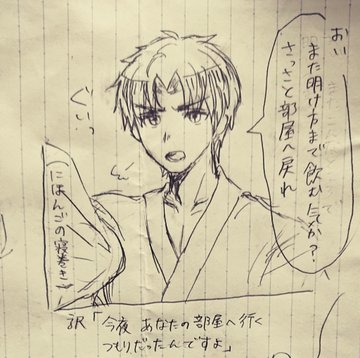 おい
また明け方まで飲む気か?
さっさと部屋へ戻れ
ぐいっ
(にほんごの寝巻き)
訳「今夜 あなたの部屋へ行く
つもりだったんですよ」